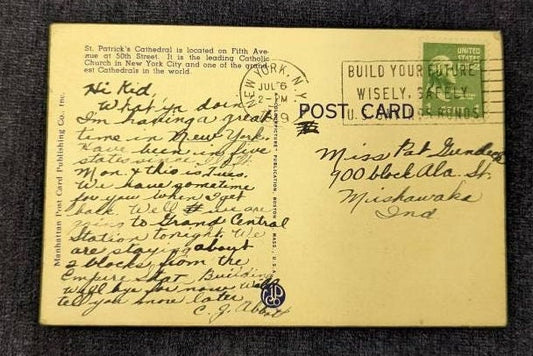 St. Patrick's Cathedral is located on Fifth Ave-
nue at 50th Street. It is the leading Catholic
Church in New York City and one of the grand-
est Cathedrals in the world.
Hi Kid,
What'ya doin,
I'm having a great
time in New York.
Have been in five
states since
Mon. & this is Tues.
We have sometime
for you when I get
back. Well we are
going to Grand Central
Station tonight. We
are staying about
2 blocks from the
Empire Stat Building
Well bye for now. Will
tell you more later
C. J. Abbott
Manhattan Post Card Publishing Co. Inc.
PUBLICATION, BOSTON MASS., U.S.
NEW YORK, N.Y.
JUL 6
2-PM
BUILD YOUR FUTURE
WISELY, SAFELY
U.S. SAVINGS BONDS
UNITED
STATES
POST CARD
Miss Pat
700 block Ala. St.
Mishawaka
Ind